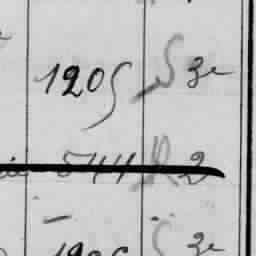 1205 S 3e
544 R 2
1205 S 3e